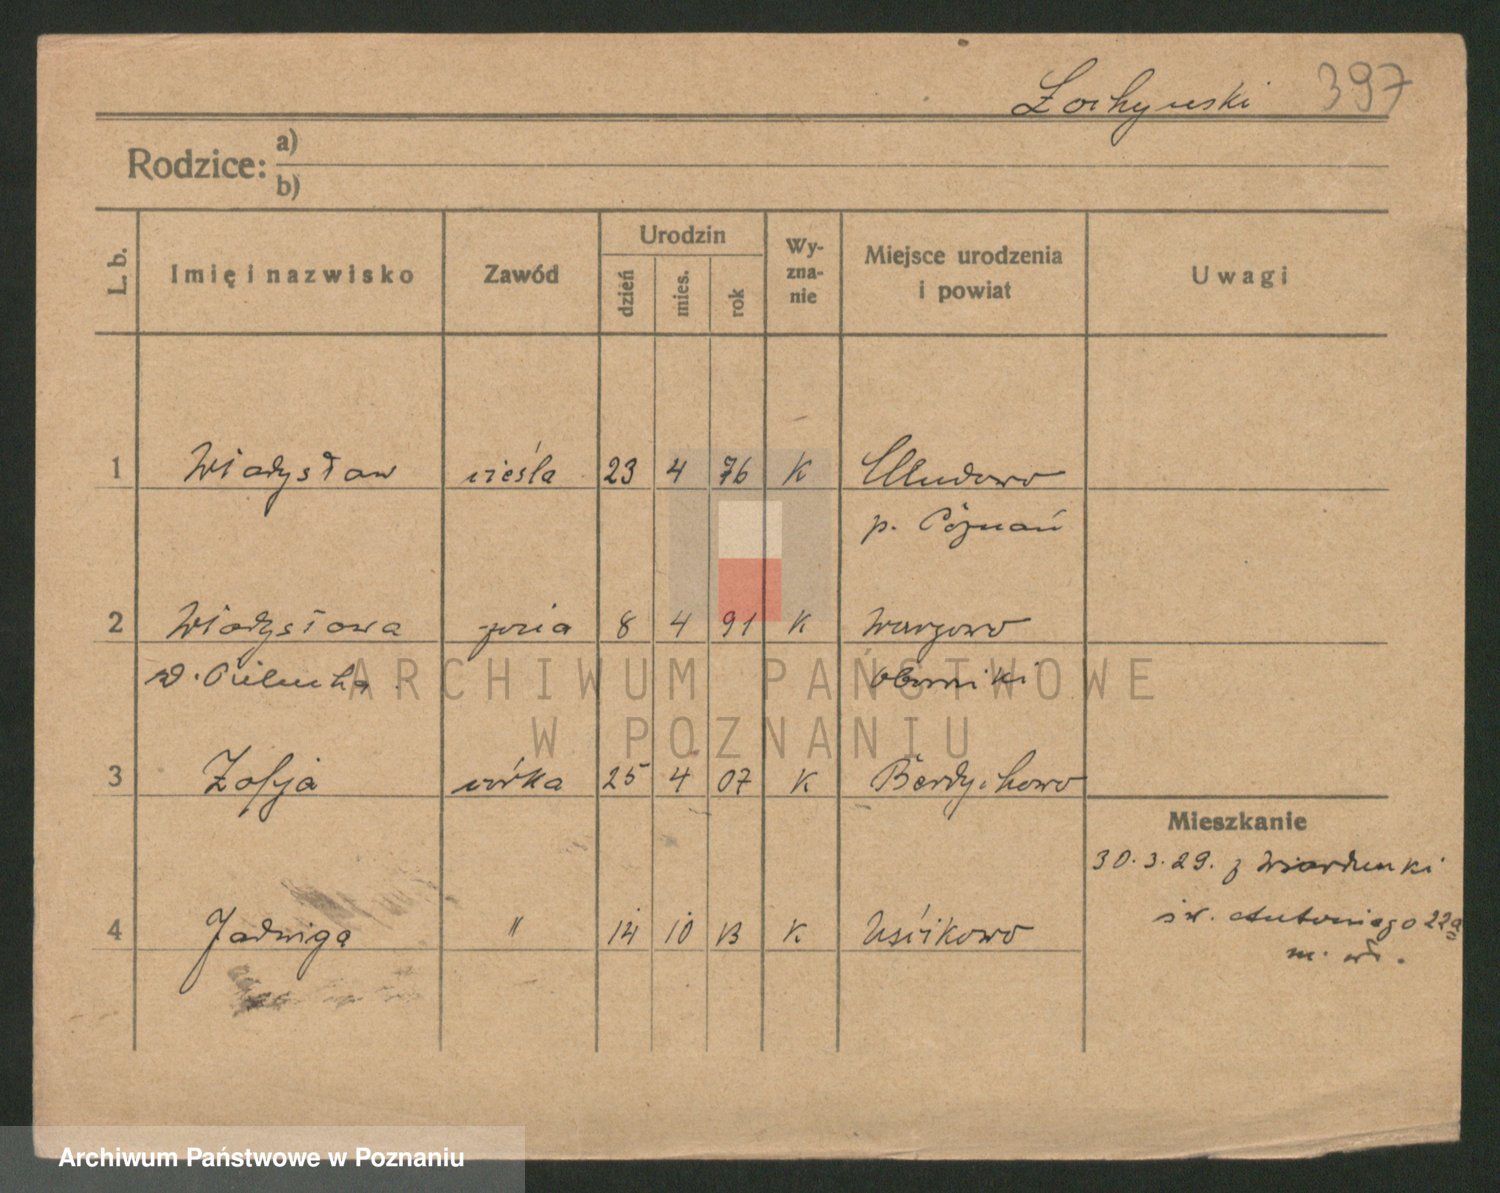 Żochowski 397
Rodzice: a)
b)
L. b. Imię i nazwisko Zawód Urodzin dzień mies. rok Wy-zna-nie Miejsce urodzenia i powiat Uwagi
1 Władysław cieśla 23 4 76 K Chludowo
p. Poznań
2 Władysława żona 8 4 91 K Wargowo
d. Cielucha Oborniki
3 Zofja córka 25 4 07 K Berdychowo
Mieszkanie
30.3.29. z Wiardunki
4 Jadwiga " 14 10 13 K Uścikowo
św. Antoniego 22a
m. wł.
ARCHIWUM PAŃSTWOWE
W POZNANIU
Archiwum Państwowe w Poznaniu